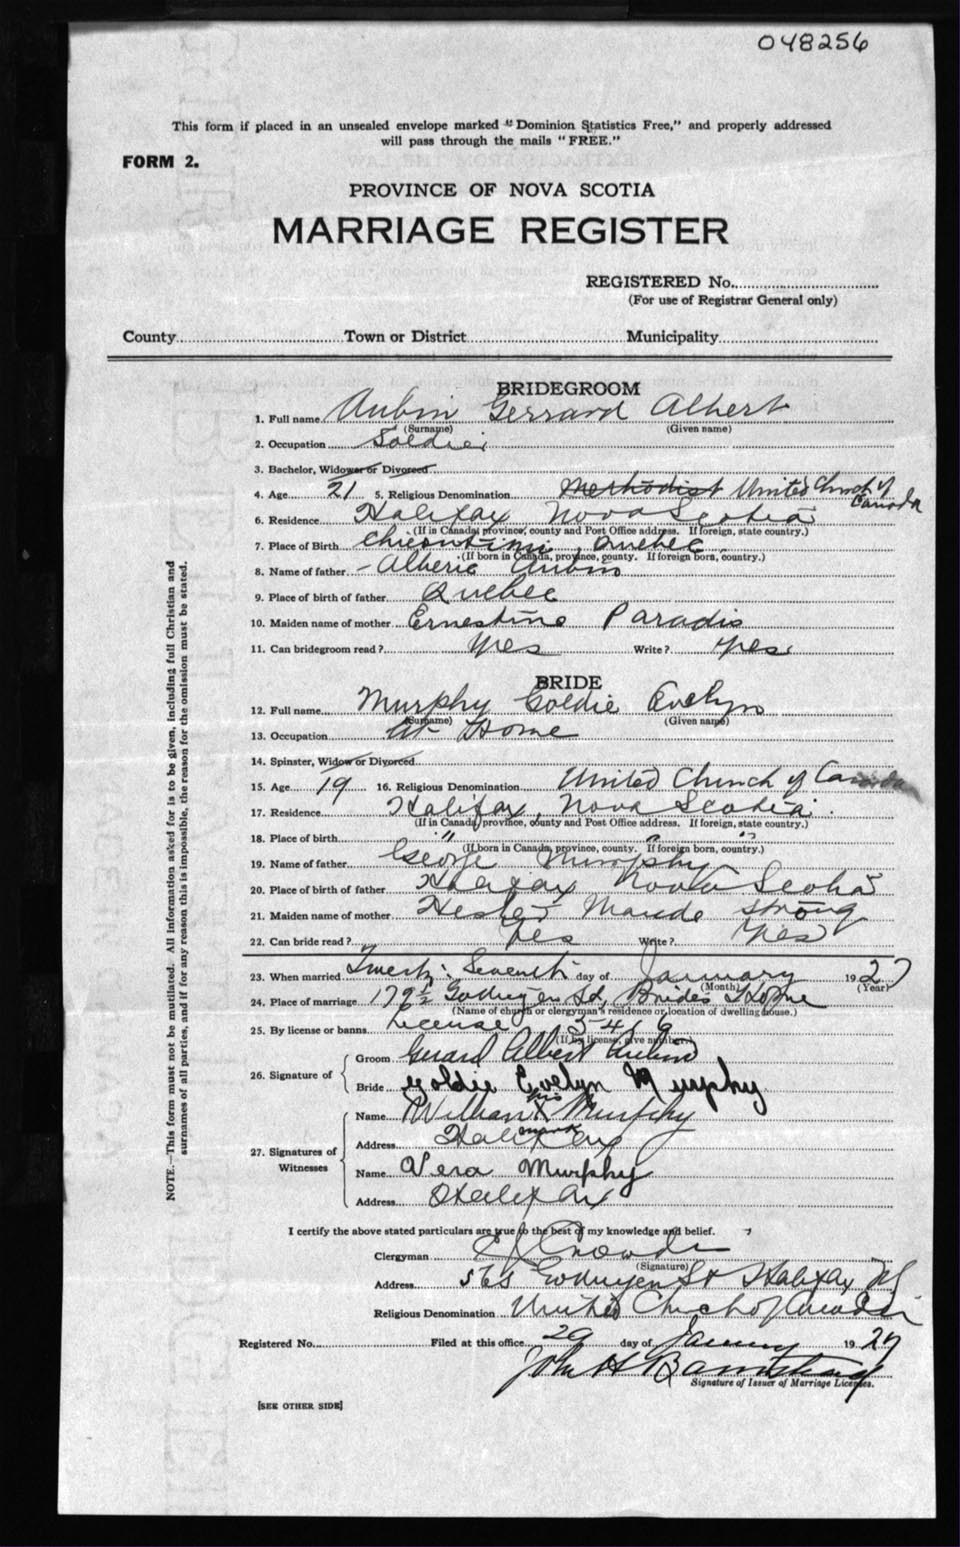 048256
This form if placed in an unsealed envelope marked "Dominion Statistics Free," and properly addressed
will pass through the mails "FREE."
FORM 2.
PROVINCE OF NOVA SCOTIA
MARRIAGE REGISTER
REGISTERED No.
(For use of Registrar General only)
County Town or District Municipality
BRIDEGROOM
1. Full name Aubin Gerrard Albert
(Surname) (Given name)
2. Occupation Soldier
3. Bachelor, Widower or Divorced
4. Age 21 5. Religious Denomination Methodist United Church of
Canada
6. Residence Halifax Nova Scotia
(If in Canada, province, county and Post Office address. If foreign, state country.)
7. Place of Birth Quebec
(If born in Canada, province, county. If foreign born, country.)
8. Name of father Alberic Aubin
9. Place of birth of father Quebec
10. Maiden name of mother Ernestine Paradis
11. Can bridegroom read? Yes Write? Yes
BRIDE
12. Full name Murphy Goldie Evelyn
(Surname) (Given name)
13. Occupation At Home
14. Spinster, Widow or Divorced
15. Age 19 16. Religious Denomination United Church of Canada
17. Residence Halifax, Nova Scotia
(If in Canada, province, county and Post Office address. If foreign, state country.)
18. Place of birth " " "
(If born in Canada, province, county. If foreign born, country.)
19. Name of father George Murphy
20. Place of birth of father Halifax Nova Scotia
21. Maiden name of mother Hester Maude Strong
22. Can bride read? Yes Write? Yes
23. When married Twenty Seventh day of January 1927
(Month) (Year)
24. Place of marriage 179½ Gottingen St, Brides Home
(Name of church or clergyman's residence or location of dwelling house.)
25. By license or banns License 5419
(If by license, give number.)
26. Signature of Groom Gerard Albert Aubin
Bride Goldie Evelyn Murphy
27. Signatures of Witnesses Name William his X mark Murphy
Address Halifax
Name Vera Murphy
Address Halifax
I certify the above stated particulars are true to the best of my knowledge and belief.
Clergyman
(Signature)
Address Gottingen St Halifax NS
Religious Denomination United Church of Canada
Registered No. Filed at this office 29 day of January 1927
John H Barnstead
Signature of Issuer of Marriage Licenses.
[SEE OTHER SIDE]
NOTE.—This form must not be mutilated. All information asked for is to be given, including full Christian and
surnames of all parties, and if for any reason this is impossible, the reason for the omission must be stated.